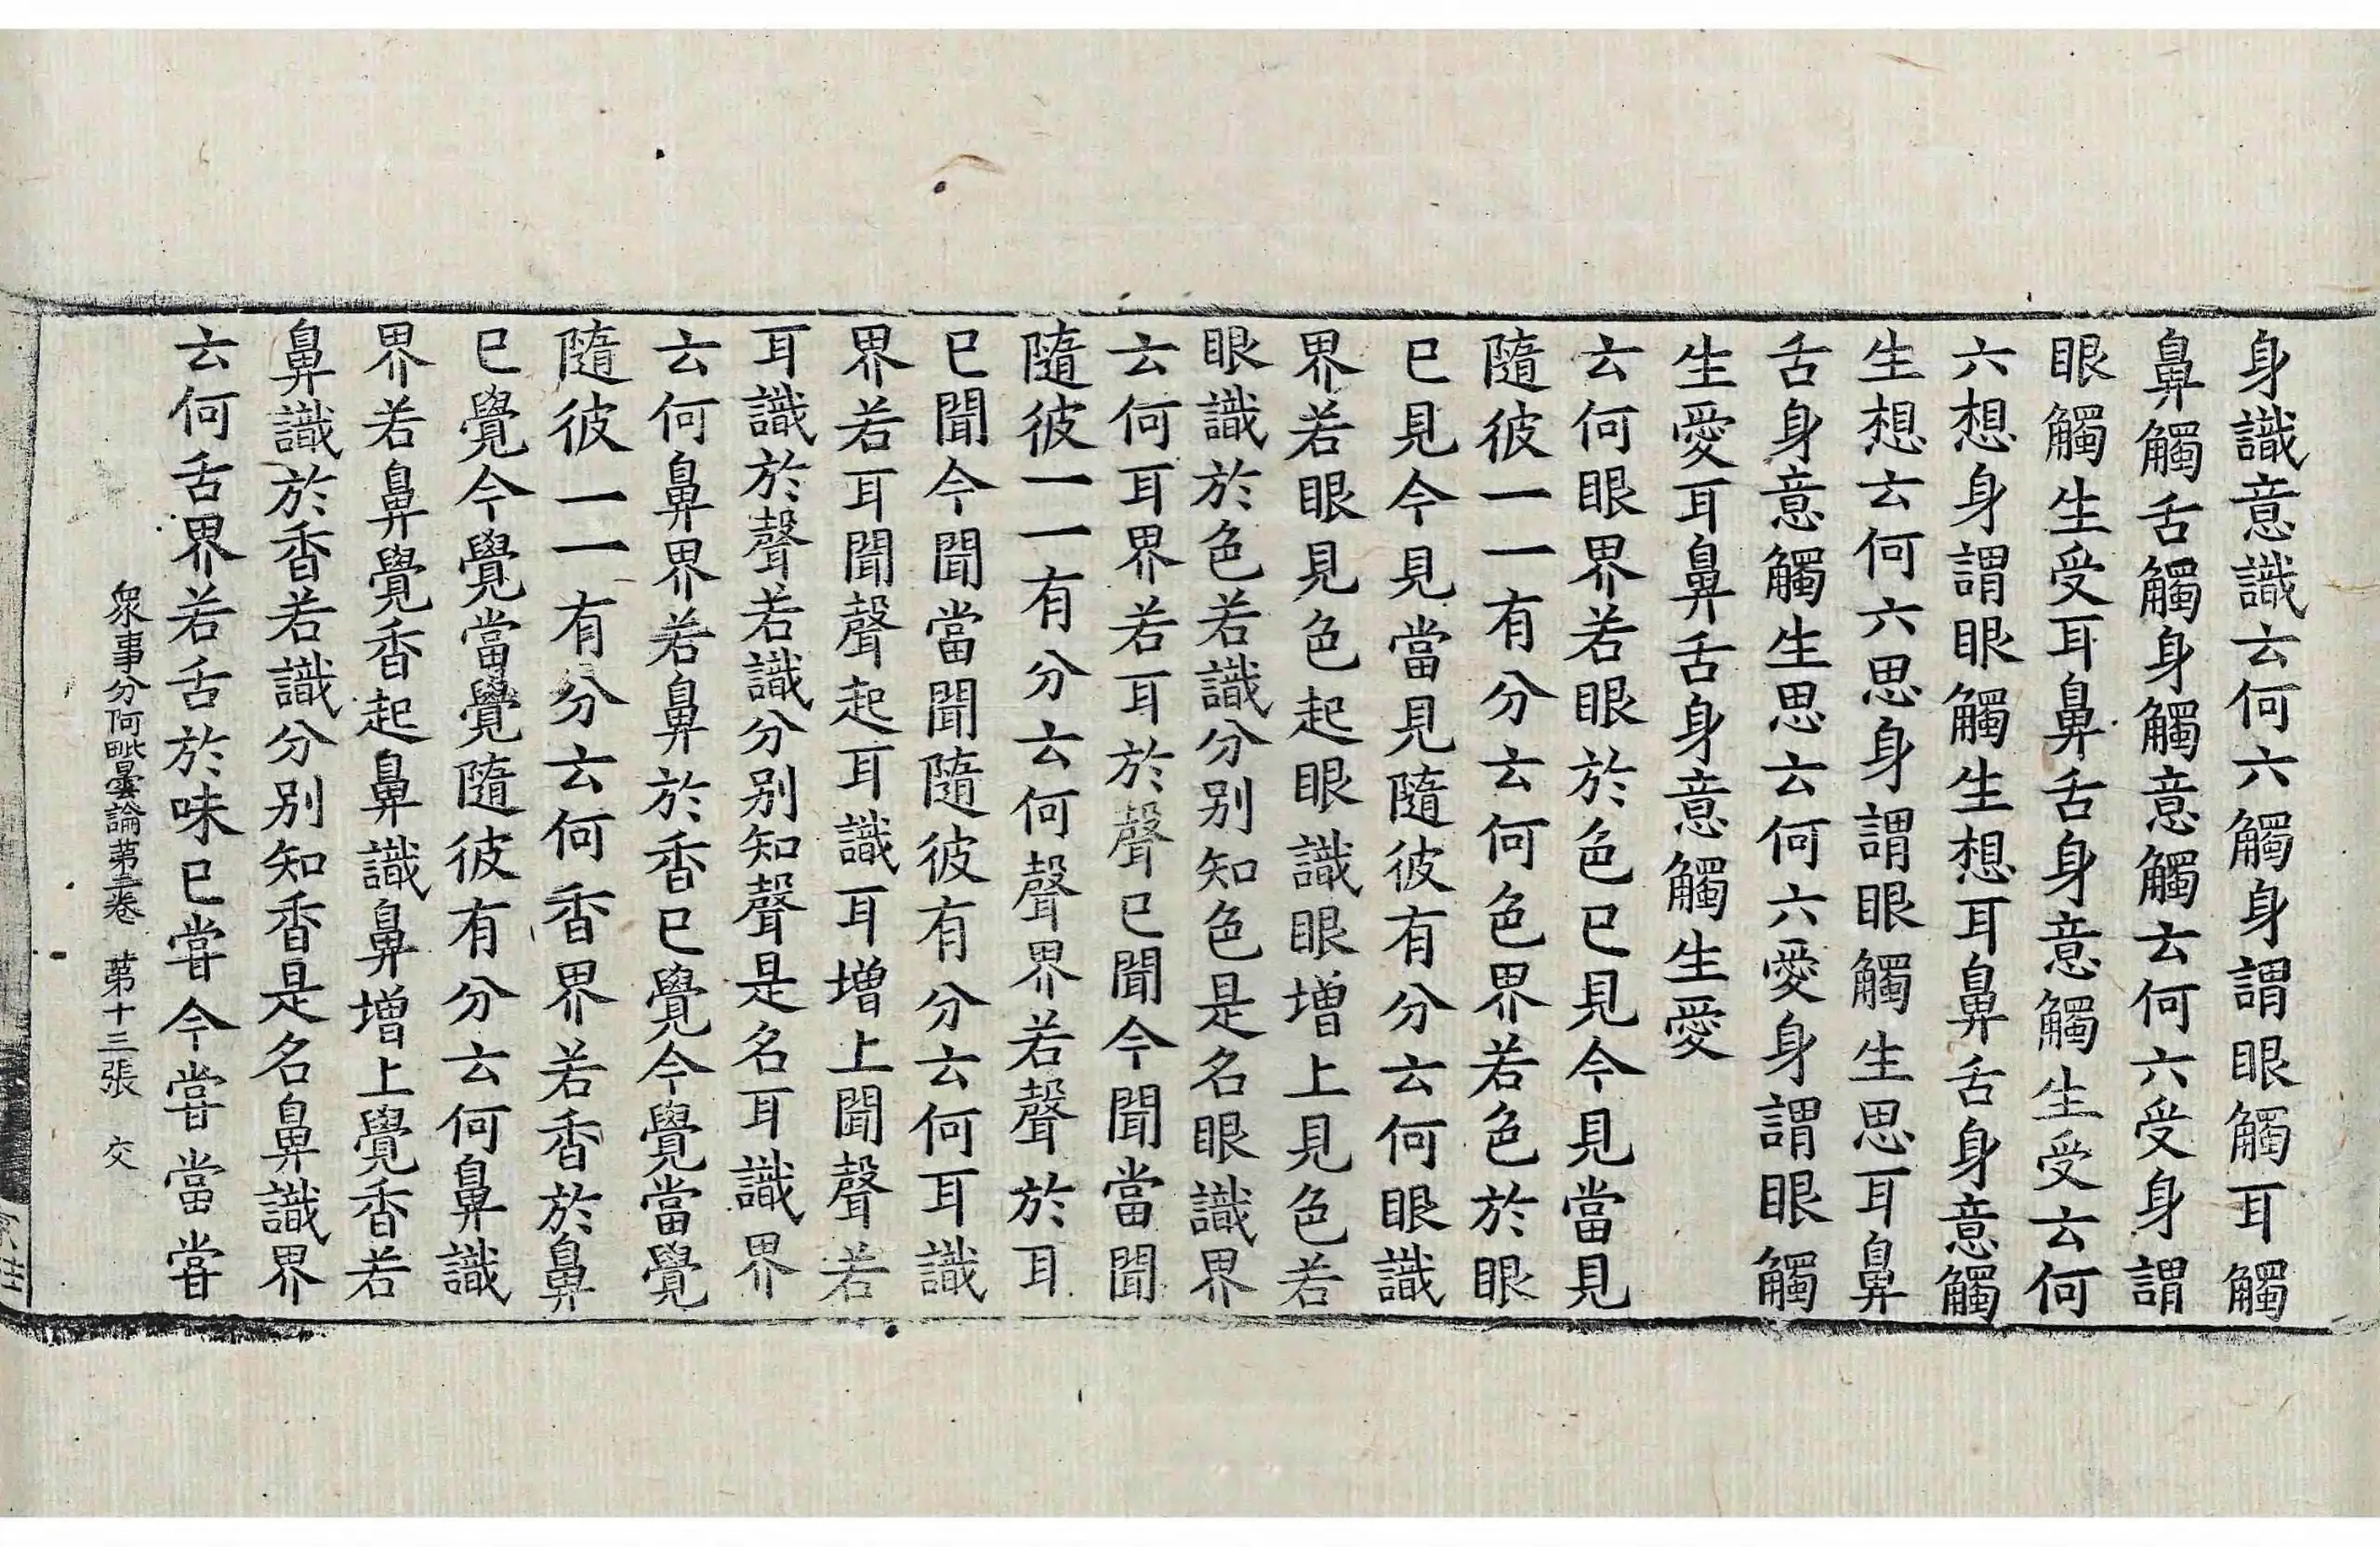 身識意識云何六觸身謂眼觸耳觸
鼻觸舌觸身觸意觸云何六受身謂
眼觸生受耳鼻舌身意觸生受云何
六想身謂眼觸生想耳鼻舌身意觸
生想云何六思身謂眼觸生思耳鼻
舌身意觸生思云何六愛身謂眼觸
生愛耳鼻舌身意觸生愛
云何眼界若眼於色已見今見當見
隨彼一一有分云何色界若色於眼
已見今見當見隨彼有分云何眼識
界若眼見色起眼識眼增上見色若
眼識於色若識分别知色是名眼識界
云何耳界若耳於聲已聞今聞當聞
隨彼一一有分云何聲界若聲於耳
已聞今聞當聞隨彼有分云何耳識
界若耳聞聲起耳識耳增上聞聲若
耳識於聲若識分别知聲是名耳識界
云何鼻界若鼻於香已覺今覺當覺
隨彼一一有分云何香界若香於鼻
已覺今覺當覺隨彼有分云何鼻識
界若鼻覺香起鼻識鼻增上覺香若
鼻識於香若識分别知香是名鼻識界
云何舌界若舌於味已嘗今嘗當嘗
衆事分阿毗曇論第二卷 第十三張 交